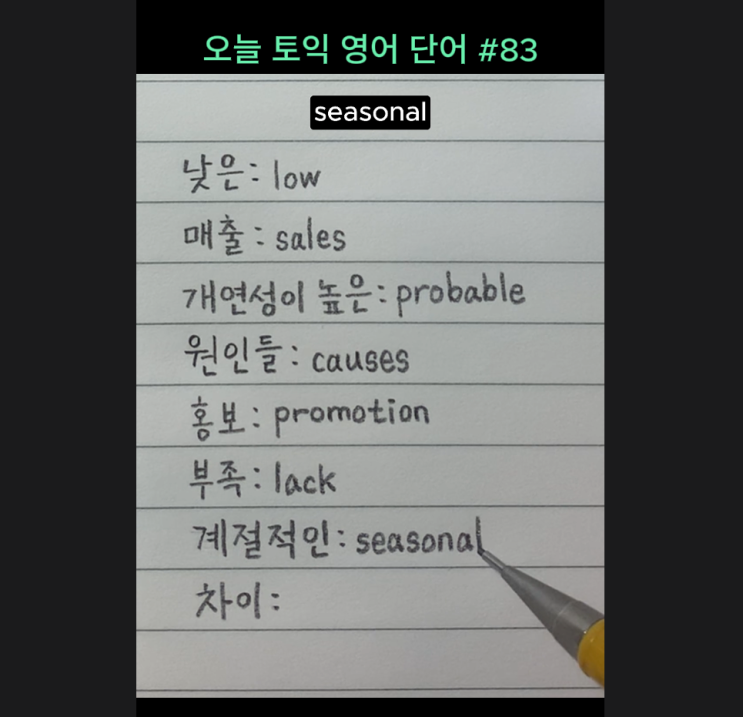 오늘 토익 영어 단어 #83
seasonal
낮은: low
매출: sales
개연성이 높은: probable
원인들: causes
홍보: promotion
부족: lack
계절적인: seasonal
차이: